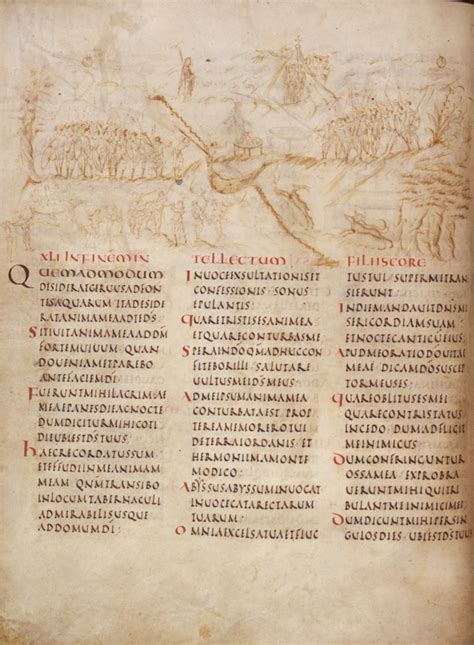 XLI INFINEMIN TELLECTUM FILIISCORE
QUEMADMODUM
DESIDERATCERUUSADFON
TESAQUARUM ITADESIDE
RATANIMAMEAADTEDS
SITIUITANIMAMEAADDM
FORTEMUIUUM QUAN
DOUENIAMETPAREBO
ANTEFACIEMDI
FUERUNTMIHILACRIMAE
MEAEPANESDIEACNOCTE
DUMDICITURMIHICOTI
DIEUBIESTDSTUUS
HAECRECORDATUSSUM
ETEFFUDIINMEANIMAM
MEAM QNMTRANSIBO
INLOCUMTABERNACULI
ADMIRABILISUSQUE
ADDOMUMDI
INUOCEEXSULTATIONISET
CONFESSIONIS SONUS
EPULANTIS
QUARETRISTISESANIMA
ETQUARECONTURBASME
SPERAINDOQMADHUCCON
FITEBORILLI SALUTARE
UULTUSMEIDSMEUS
ADMEIPSUMANIMAMEA
CONTURBATAEST PROP
TEREAMEMOREROTUI
DETERRAIORDANIS ET
HERMONIIMAMONTE
MODICO
ABYSSUSABYSSUMINUOCAT
INUOCECATARACTARUM
TUARUM
OMNIAEXCELSATUAETFLUC
TUSTUI SUPERMETRAN
SIERUNT
INDIEMANDAUITDNSMI
SERICORDIAMSUAM
ETNOCTECANTICUEIUS
APUDMEORATIODOUITAE
MEAE DICAMDOSUSCEP
TORMEUSES
QUAREOBLITUSESMEI
QUARECONTRISTATUS
INCEDO DUMADFLIGIT
MEINIMICUS
DUMCONFRINGUNTUR
OSSAMEA EXPROBRA
UERUNTMIHIQUITRI
BULANTMEINIMICIMEI
DUMDICUNTMIHIPERSIN
GULOSDIES UBIESTDSTUUS